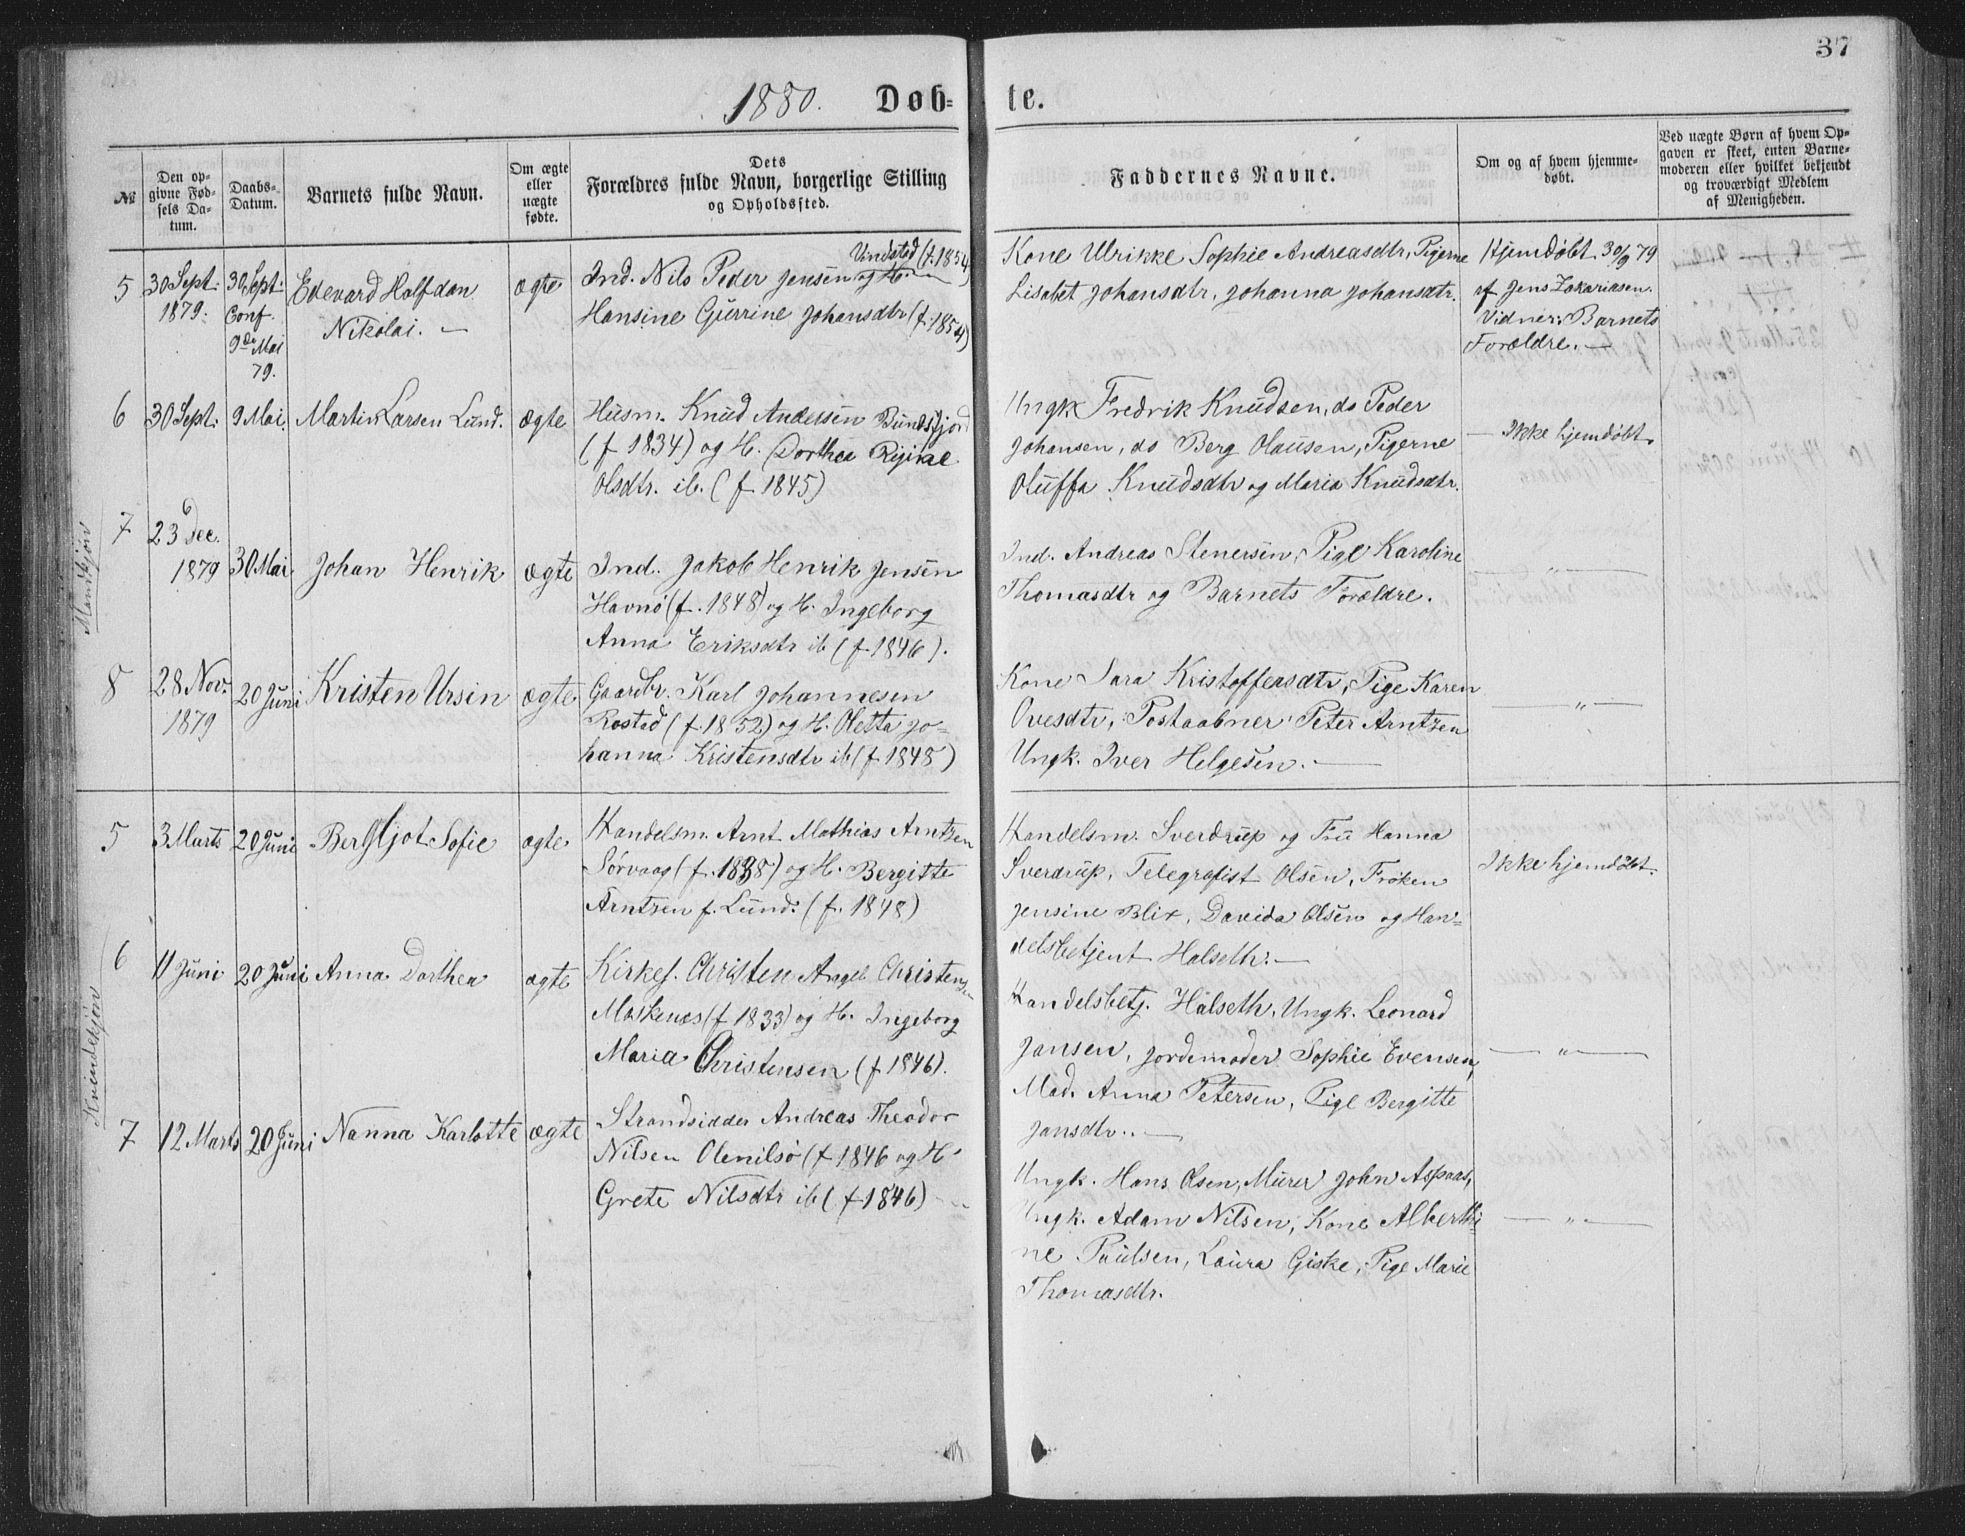 37
1880. Døb- te.
№
Den op-
givne Fød-
sels Da-
tum.
Daabs-
Datum.
Barnets fulde Navn.
Om ægte
eller
uægte
fødte.
Dets
Forældres fulde Navn, borgerlige Stilling
og Opholdssted.
Faddernes Navne.
Om og af hvem hjemme-
døbt.
Ved uægte Børn af hvem Op-
gaven er skeet, enten Barne-
moderen eller hvilket bekjendt
og troværdigt Medlem
af Menigheden.
Mandkjøn
5
30 Sept.
1879.
30 Sept.
Conf.
9de Mai
79.
Edevard Halfdan
Nikolai. —
ægte
Vindstad (f. 1854)
Ind. Nils Peder Jensen og H.
Hansine Gurrine Johansdtr (f. 1854)
Kone Ulrikke Sophie Andreasdtr, Pigerne
Lisabet Johansdtr, Johanna Johansdtr.
Hjemdøbt 30/9 79
af Jens Zakariasen.
Vidner: Barnets
Forældre. —
6
30 Sept.
9 Mai.
Martin Larsen Lund.
ægte
Husm. Knud Andersen Bundsfjord
(f 1834) og H. Dorthea Regine
Olsdtr. ib. (f 1845)
Ungk Fredrik Knudsen, do Peder
Johansen, do Berg Olausen, Pigerne
Oluffa Knudsdtr og Maria Knudsdtr.
— Ikke hjemdøbt.
7
23 Dec.
1879
30 Mai
Johan Henrik
ægte
Ind. Jakob Henrik Jensen
Havnø (f. 1848) og H. Ingeborg
Anna Eriksdtr ib (f. 1846).
Ind. Andreas Stenersen, Pige Karoline
Thomasdtr og Barnets Forældre.
— " —
8
28 Nov.
1879
20 Juni
Kristen Ursin
ægte
Gaardbr. Karl Johannesen
Rostad (f. 1852) og H. Oletta Jo-
hanna Kristensdtr ib (f 1848)
Kone Sara Kristoffersdtr, Pige Karen
Ovesdtr, Postaabner Peter Arntzen
Ungk. Iver Helgesen. —
— " —
Kvindekjøn
5
3 Marts
20 Juni
Bergljot Sofie
ægte
Handelsm. Arnt Mathias Arntzen
Sørvaag (f. 1838) og H. Bergitte
Arntzen f. Lund. (f. 1848)
Handelsm. Sverdrup og Fru Hanna
Sverdrup, Telegrafist Olsen, Frøken
Jensine Blix, Davida Olsen og Han-
delsbetjent Halseth. —
Ikke hjemdøbt.
6
11 Juni
20 Juni
Anna Dorthea
ægte
Kirkes. Christen Angel Christensen
Moskenæs (f 1833) og H. Ingeborg
Maria Christensen (f 1846).
Handelsbetj. Halseth, Ungk. Leonard
Jansen, Jordemoder Sophie Evensen,
Mad. Anna Petersen, Pige Bergitte
Jansdtr. —
— " —
7
12 Marts
20 Juni
Nanna Karlotte
ægte
Strandsidder Andreas Theodor
Nilsen Olenilsø (f 1846 og H.
Grete Nilsdtr ib (f 1846)
Ungk. Hans Olsen, Murer John Aspaas,
Ungk. Adam Nilsen, Kone Alberthi-
ne Paulsen, Laura Giske, Pige Marie
Thomasdtr.
— " —